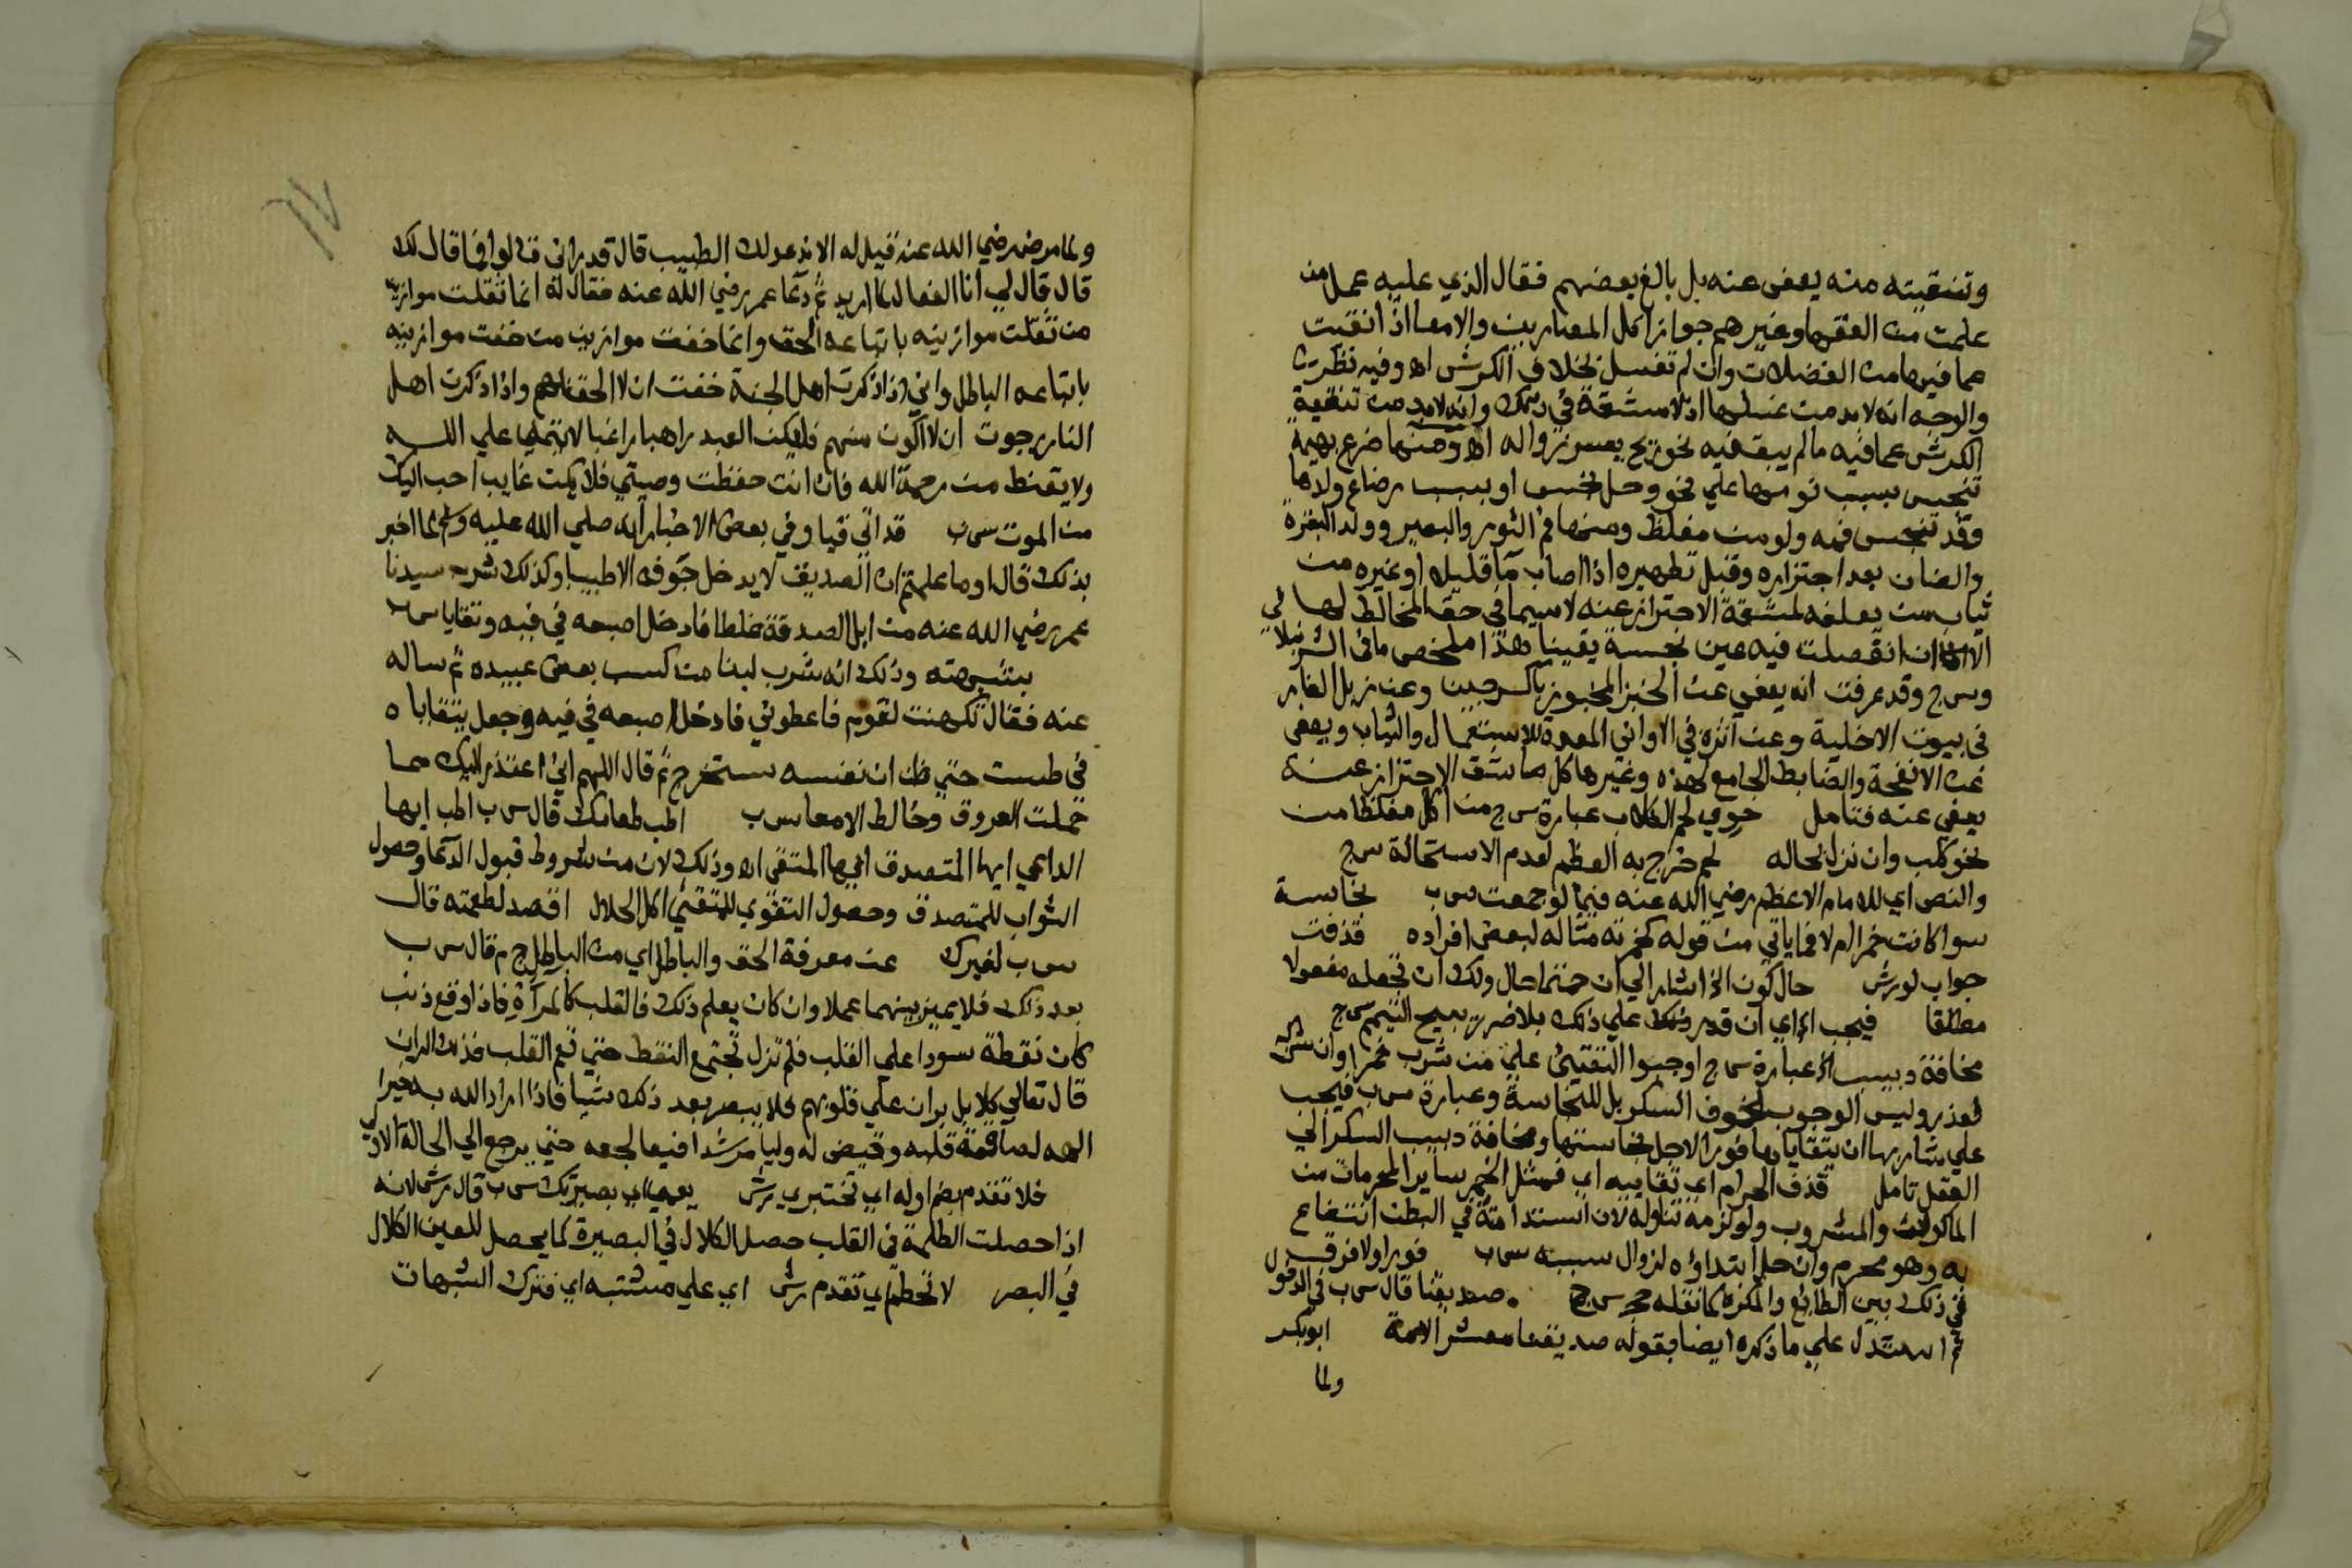 وتنقيته منه يعفى عنه بل بالغ بعضهم فقال الذي عليه عمل من
علمت من الفقها وغيرهم جواز اكل المصارين والامعا اذا انقيت
مما فيها من الفضلات وان لم تغسل بخلاف الكرش اه وفيه نظر
والوجه انه لابد من غسلها اذ لا مشقة في ذلك وانه لابد من تنقية
الكرش عما فيه ما لم يبق فيه نحو ريح يعسر زواله اه ومنها ضرع بهيمة
تنجس بسبب نومها علي نحو وحل نجس او بسبب رضاع ولدها
وقد تنجس فمه ولو من مغلظ ومنها فم الثور والبعير وولد البقرة
والضان بعد اجتراره وقبل تطهيره اذا اصاب ما قليلا او غيره من
ثياب من يعلفه لمشقة الاحتراز عنه لا سيما في حق المخالط لها
ان انفصلت فيه عين نجسة يقينا هذا ملخص ما في
وس ج وقد عرفت انه يعفى عن الخبز المخبوز بالسرجين وعن زبل الفار
في بيوت الاخلية وعن اثره في الاواني المعدة للاستعمال والثياب ويعفى
عن الانفحة والضابط الجامع لهذه وغيرها كل ما يشق الاحتراز عنه
يعفى عنه فتامل حوي لحم الكلاب عبارة س ج من اكل مغلظا من
نحو كلب وان نزل بحاله لحم خرج به العظم لعدم الاستحالة س ج
والنص اي للامام الاعظم رضي الله عنه فيما لو جمعت س ب نجاسة
سوا كانت خمرا ام لا فما ياتي من قوله كخمرته مثاله لبعض افراده قذفت
جواب لو رش حال كون الخ اشار الي ان حال ولك ان تجعله مفعولا
مطلقا فيجب الخ اي ان قدر علي ذلك بلا ضرر يبيح التيمم س ج
مخافة دبيب الخ عبارة س ج اوجبوا التقيئ علي من شرب خمرا وان
لعذر وليس الوجوب لخوف السكر بل للنجاسة وعبارة س ب فيجب
علي شاربها ان يتقاياها فورا لاجل نجاستها ومخافة دبيب السكر الي
العقل تامل قذف الحرام اي تقاييه اي فمثل الخمر ساير المحرمات من
الماكولات والمشروب ولو لزمه تناوله لان استدامته في البطن انتفاع
به وهو محرم وان حل ابتداؤه لزوال سببه س ب فورا ولا فرق
في ذلك بين الطائع والمكره كما نقله س ج صديقنا قال س ب
ثم استدل علي ما ذكره ايضا بقوله صديقنا معشر الامة ابوبكر
ولما
ولما مرض رضي الله عنه قيل له الا ندعو لك الطبيب قال قد راني قالوا فما قال لك
قال قال لي انا الفعال لما اريد ثم دعا عمر رضي الله عنه فقال له انما ثقلت موازين
من ثقلت موازينه باتباعه الحق وانما خفت موازين من خفت موازينه
باتباعه الباطل واني اذا ذكرت اهل الجنة خفت ان لا الحق بهم واذا ذكرت اهل
النار رجوت ان لا اكون منهم فليكن العبد راهبا راغبا لا يتمني علي الله
ولا يقنط من رحمة الله فان انت حفظت وصيتي فلا يكن غايب احب اليك
من الموت س ب قد اتي قيا وفي بعض الاخبار انه صلي الله عليه وسلم لما اخبر
بذلك قال اوما علمتم ان الصديق لا يدخل جوفه الا طيبا وكذلك شرب سيدنا
عمر رضي الله عنه من ابل الصدقة غلطا فادخل اصبعه في فيه وتقايا س ب
بشبهته وذلك انه شرب لبنا من كسب بعض عبيده ثم ساله
عنه فقال تكهنت لقوم فاعطوني فادخل اصبعه في فيه وجعل يتقاياه
في طست حتي ظن ان نفسه ستخرج ثم قال اللهم اني اعتذر اليك مما
حملت العروق وخالط الامعا س ب اطب طعامك قال س ب اطب ايها
الداعي ايها المتصدق ايها المتقي اه وذلك لان من شروط قبول الدعا وحصول
الثواب للمتصدق وحصول التقوي للمتقي اكل الحلال اقصد لطعمته قال
س ب لغيرك عن معرفة الحق والباطل اي من الباطل ج م قال س ب
بعد ذلك فلا يميز بينهما عملا وان كان يعلم ذلك فالقلب كالمرآة فاذا وقع ذنب
كان نقطة سودا علي القلب فلم تزل تجتمع النقط حتي تعم القلب فذلك الران
قال تعالي كلا بل ران علي قلوبهم فلا يبصر بعد ذلك شيا فاذا اراد الله به خيرا
الهمه لصاقمة قلبه وقيض له وليا مرشدا فيعالجه حتي يرجع الي الحالة الاولي
فلا تقدم بضم اوله اي تختبري رش يعمي اي بصيرتك س ب قال رش لانه
اذا حصلت الظلمة في القلب حصل الكلال في البصيرة كما يحصل للعين الكلال
في البصر لا تحطم اي تقدم رش اي علي مشتبه اي فترك الشبهات